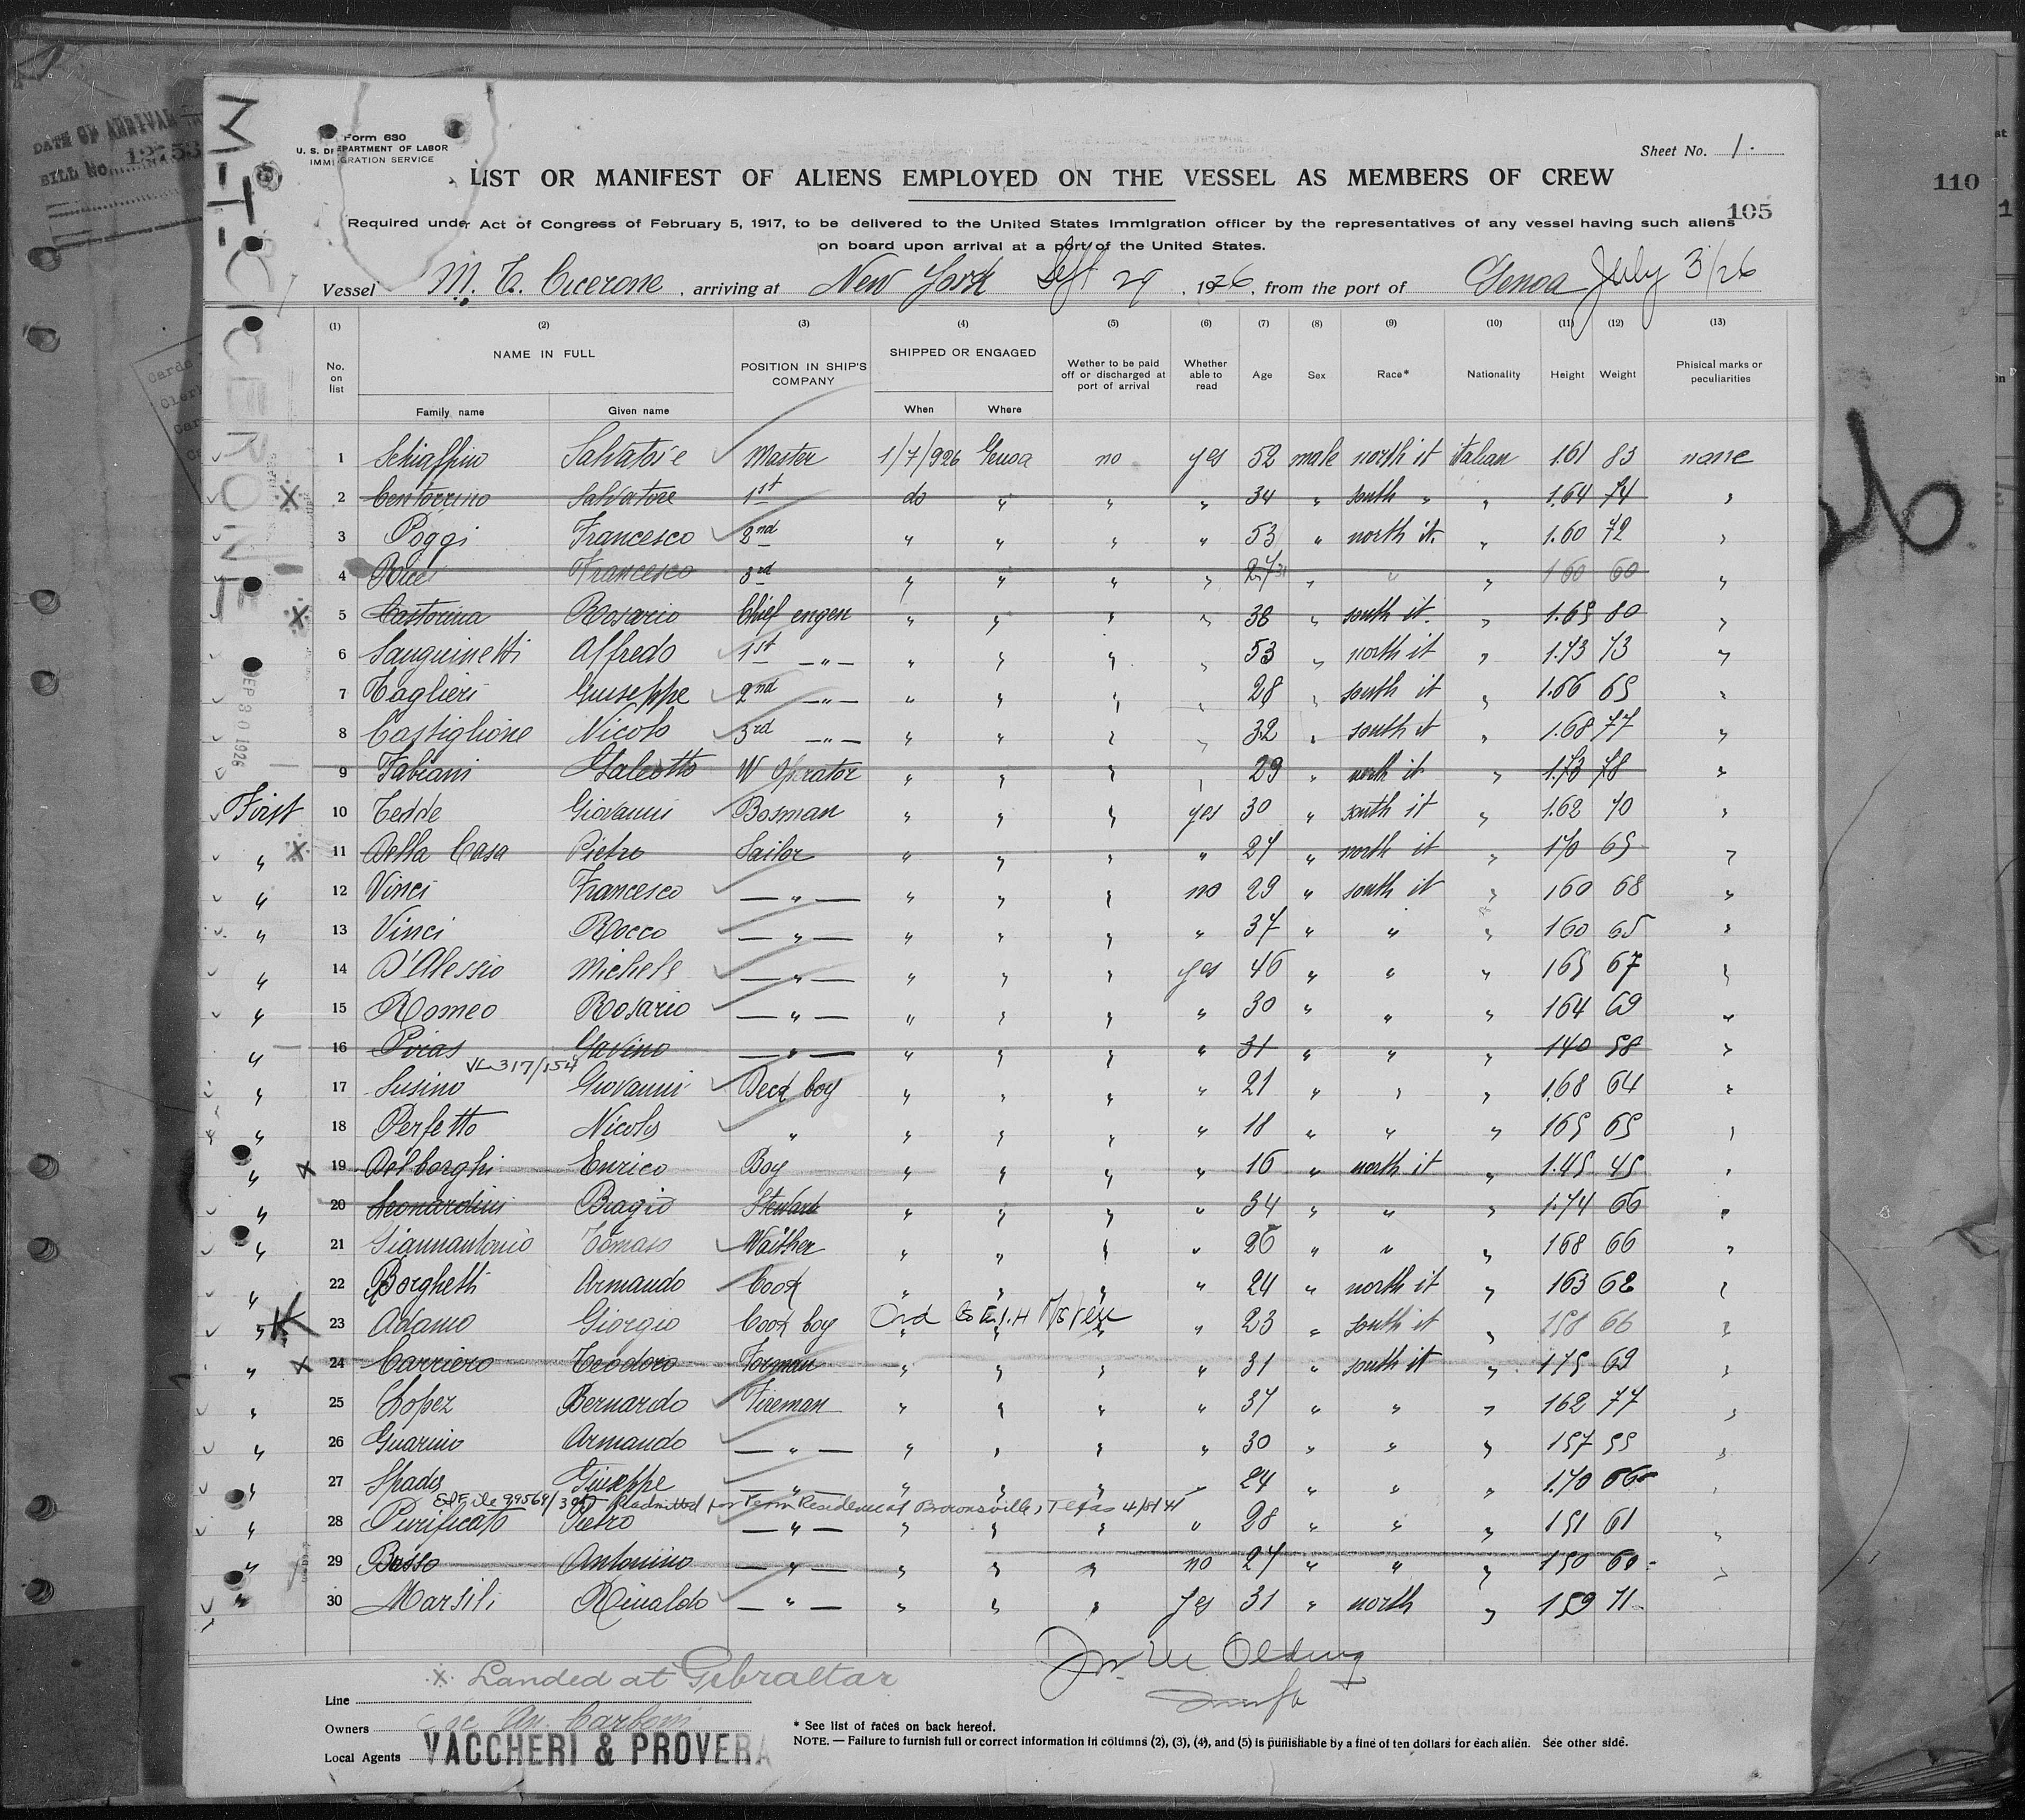 DATE OF ARRIVAL
BILL No.
M-T-CICERONE
Form 630
U. S. DEPARTMENT OF LABOR
IMMIGRATION SERVICE
Sheet No. 1.
LIST OR MANIFEST OF ALIENS EMPLOYED ON THE VESSEL AS MEMBERS OF CREW
110
105
Required under Act of Congress of February 5, 1917, to be delivered to the United States Immigration officer by the representatives of any vessel having such aliens
on board upon arrival at a port of the United States.
Vessel M. T. Cicerone, arriving at New York Sept 29, 1926, from the port of Genoa July 3/26
(1) (2) (3) (4) (5) (6) (7) (8) (9) (10) (11) (12) (13)
No. on list NAME IN FULL POSITION IN SHIP'S COMPANY SHIPPED OR ENGAGED Wether to be paid off or discharged at port of arrival Whether able to read Age Sex Race* Nationality Height Weight Phisical marks or peculiarities
Family name Given name When Where
1 Schiaffino Salvatore Master 1/7/926 Genoa no yes 52 male north it italian 1.61 83 none
2 Centorrino Salvatore 1st do " " " 34 " south " " 1.64 74 "
3 Poggi Francesco 2nd " " " " 53 " north it. " 1.60 72 "
4 Francesco 3rd " " " " 27 " " " 160 60 "
5 Castorina Rosario Chief engen " " " " 38 " south it. " 1.65 80 "
6 Sanguinetti Alfredo 1st —"— " " " " 53 " north it " 1.73 73 "
7 Taglieri Giuseppe 2nd —"— " " " " 28 " south it " 1.66 65 "
8 Castiglione Nicolo 3rd —"— " " " " 32 " south it " 1.68 77 "
9 Fabiani Galeotto W operator " " " " 29 " north it " 1.78 78 "
First 10 Tedde Giovanni Bosman " " " yes 30 " south it " 1.62 70 "
" 11 Della Casa Pietro Sailor " " " " 24 " north it " 170 65 "
" 12 Vinci Francesco —"— " " " no 29 " south it " 160 68 "
" 13 Vinci Rocco —"— " " " " 37 " " " 160 65 "
" 14 D'Alessio Michele —"— " " " yes 46 " " " 165 67 "
" 15 Romeo Rosario —"— " " " " 30 " " " 164 69 "
" 16 Piras Gavino —"— " " " " 31 " " " 140 58 "
VL 317/154
" 17 Susino Giovanni Deck boy " " " " 21 " " " 1.68 64 "
" 18 Perfetto Nicola " " " " " 18 " " " 165 65 "
" 19 Delborghi Enrico Boy " " " " 16 " north it " 1.45 45 "
" 20 Leonardini Biagio Steward " " " " 34 " " " 1.74 66 "
" 21 Giannantonio Tomaso Waither " " " " 26 " " " 168 66 "
" 22 Borghetti Armando Cook " " " " 24 " north it " 163 62 "
" 23 Adamo Giorgio Cook boy " " " " 23 " south it " 158 66 "
" 24 Carriero Teodoro Forman " " " " 31 " south it " 175 69 "
" 25 Lopez Bernardo Fireman " " " " 37 " " " 162 77 "
" 26 Guarino Armando —"— " " " " 30 " " " 157 55 "
" 27 Spada Giuseppe —"— " " " " 24 " " " 1.70 66
File 99569/3 Readmitted for Perm Residence at Brownsville, Texas
" 28 Purificato Pietro —"— " " " " 28 " " " 151 61 "
" 29 Basso Antonino —"— " " " no 24 " " " 150 60 "
" 30 Marsili Rinaldo —"— " " " yes 31 " north " 159 71
SEP 30 1926
x Landed at Gibraltar
Line
Owners
Local Agents VACCHERI & PROVERA
* See list of races on back hereof.
NOTE. — Failure to furnish full or correct information in columns (2), (3), (4), and (5) is punishable by a fine of ten dollars for each alien. See other side.